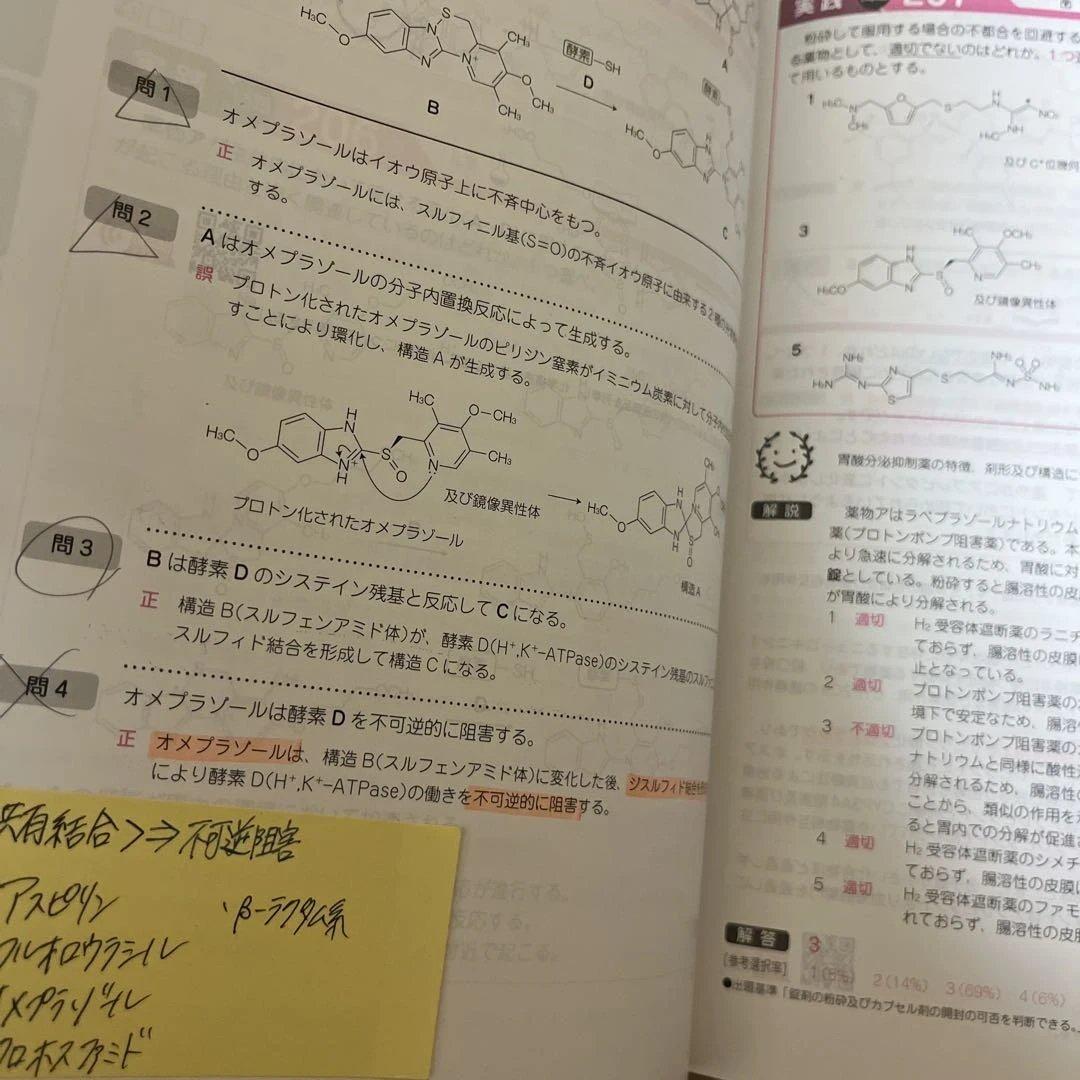 H₃C
O
S
N
N
N⁺
CH₃
O
CH₃
CH₃
B
酵素 -SH
D
H₃C
O
N
C
問1
オメプラゾールはイオウ原子上に不斉中心をもつ。
正 オメプラゾールには、スルフィニル基(S=O)の不斉イオウ原子に由来する2種の
する。
問2
Aはオメプラゾールの分子内置換反応によって生成する。
誤 プロトン化されたオメプラゾールのピリジン窒素がイミニウム炭素に対して分子内
すことにより環化し、構造Aが生成する。
H₃C
O
H
N
N⁺
H
S
O
H₃C
O-CH₃
CH₃
N
及び鏡像異性体
プロトン化されたオメプラゾール
H₃C
O
H
N
N
H
S
O
CH₃
構造A
問3
Bは酵素Dのシステイン残基と反応してCになる。
正 構造B(スルフェンアミド体)が、酵素D(H⁺,K⁺-ATPase)のシステイン残基の
スルフィド結合を形成して構造Cになる。
問4
オメプラゾールは酵素Dを不可逆的に阻害する。
正 オメプラゾールは、構造B(スルフェンアミド体)に変化した後、ジスルフィド結合
により酵素D(H⁺,K⁺-ATPase)の働きを不可逆的に阻害する。
共有結合>⇒不可逆阻害
アスピリン ・β-ラクタム系
フルオロウラシル
オメプラゾール
シクロホスファミド
実践
粉砕して服用する場合の不都合を回避する
る薬物として、適切でないのはどれか。1つ
て用いるものとする。
A
酵素
1
H₃C
N
CH₃
O
S
H
N
NO₂
H₃C
NH
及びC*位幾何
3
H₃CO
H
N
N
S
O
H₃C
OCH₃
CH₃
N
及び鏡像異性体
5
NH₂
H₂N
N
N
S
S
NH₂
N
O
O
S
NH₂
胃酸分泌抑制薬の特徴、剤形及び構造に
解説
薬物アはラベプラゾールナトリウム
薬(プロトンポンプ阻害薬)である。本
より急速に分解されるため、胃酸に対
錠としている。粉砕すると腸溶性の皮
が胃酸により分解される。
1 適切 H₂受容体遮断薬のラニチ
ておらず、腸溶性の皮膜
止となっている。
2 適切 プロトンポンプ阻害薬の
境下で安定なため、腸溶
3 不適切 プロトンポンプ阻害薬の
ナトリウムと同様に酸性
分解されるため、腸溶性の
ことから、類似の作用を
ると胃内での分解が促進
4 適切 H₂受容体遮断薬のシメチ
ておらず、腸溶性の皮膜
5 適切 H₂受容体遮断薬のファモ
れておらず、腸溶性の皮
解答 3
[参考選択率] 1(5%) 2(14%) 3(69%) 4(6%)
●出題基準「錠剤の粉砕及びカプセル剤の開封の可否を判断できる。」